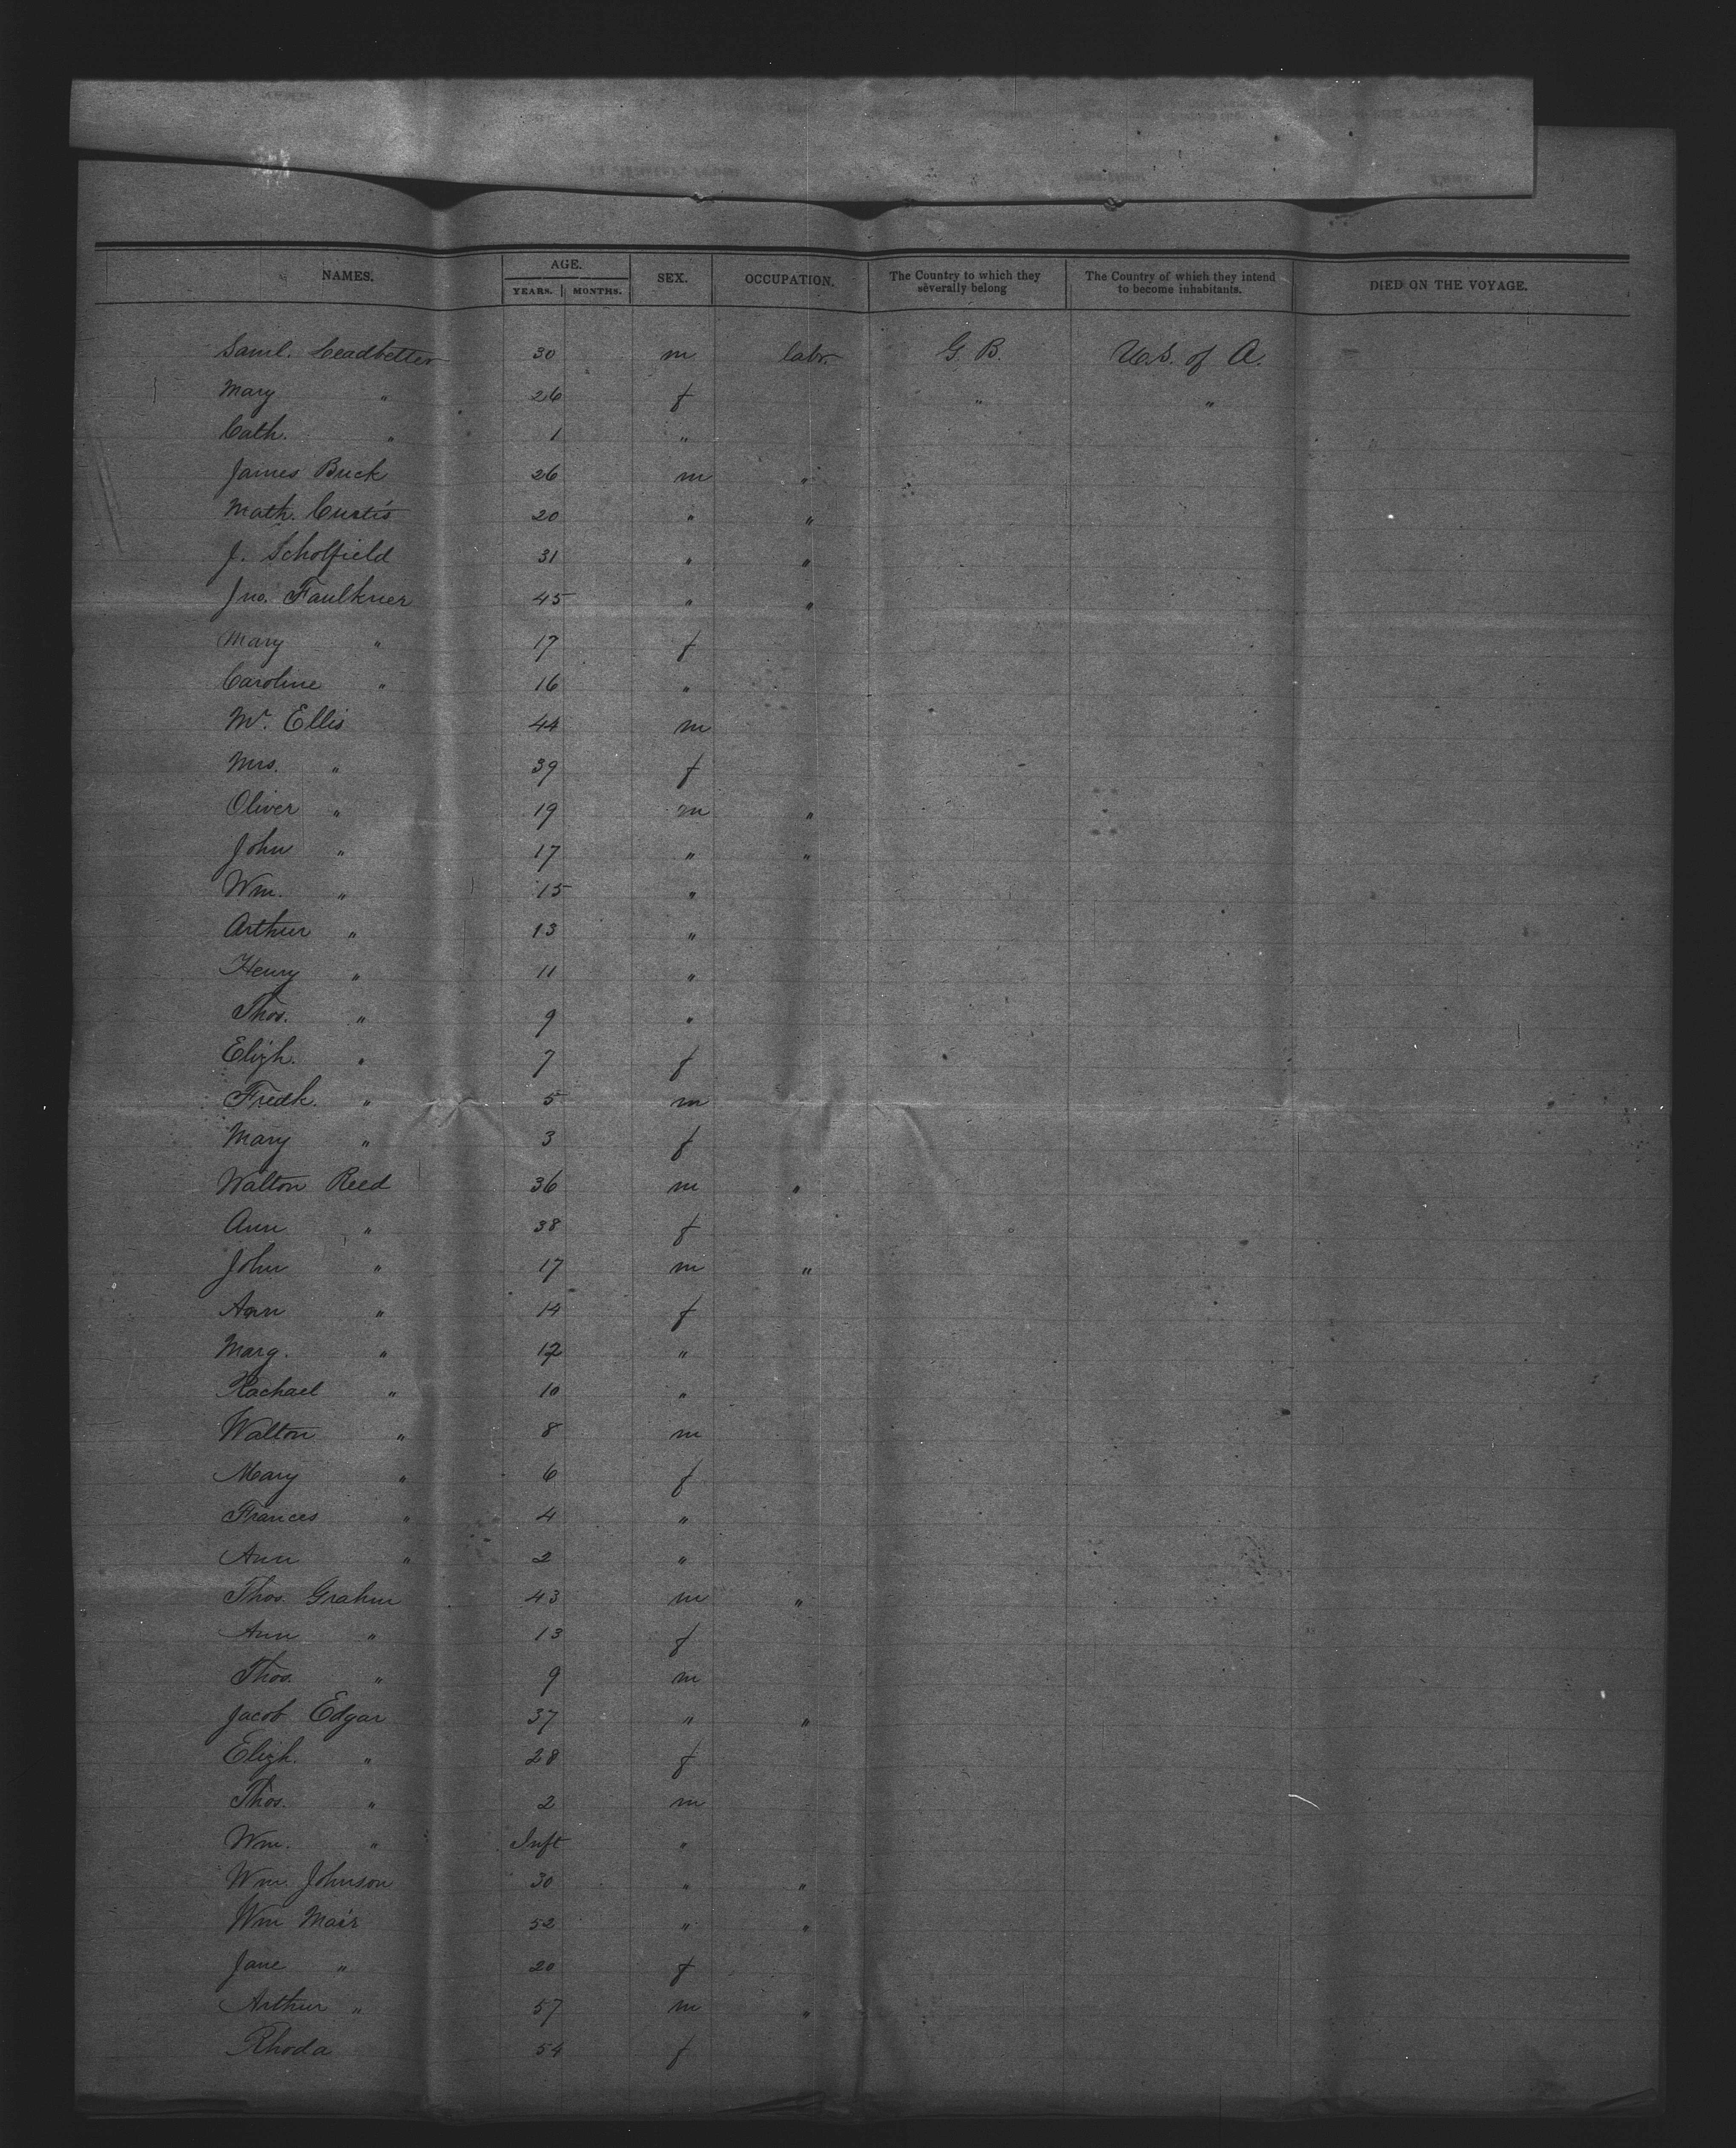 NAMES. AGE. YEARS. MONTHS. SEX. OCCUPATION. The Country to which they severally belong The Country of which they intend to become inhabitants. DIED ON THE VOYAGE.
Saml. Leadbetter 30 m labr. G. B. U.S. of A.
Mary " 26 f " "
Cath. " 1 "
James Buck 26 m "
Math. Curtis 20 " "
J. Scholfield 31 " "
Jno. Faulkner 45 " "
Mary " 17 f
Caroline " 16 "
Mr. Ellis 44 m
Mrs. " 39 f
Oliver " 19 m "
John " 17 " "
Wm. " 15 "
Arthur " 13 "
Henry " 11 "
Thos. " 9 "
Elizh. " 7 f
Fredk. " 5 m
Mary " 3 f
Walton Reed 36 m "
Ann " 38 f
John " 17 m "
Ann " 14 f
Marg. " 12 "
Rachael " 10 "
Walton " 8 m
Mary " 6 f
Frances " 4 "
Ann " 2 "
Thos. Grahm 43 m "
Ann " 13 f
Thos. " 9 m
Jacob Edgar 37 " "
Elizh. " 28 f
Thos. " 2 m
Wm. " Inft "
Wm. Johnson 30 " "
Wm Mair 52 " "
Jane " 20 f
Arthur " 57 m "
Rhoda 54 f